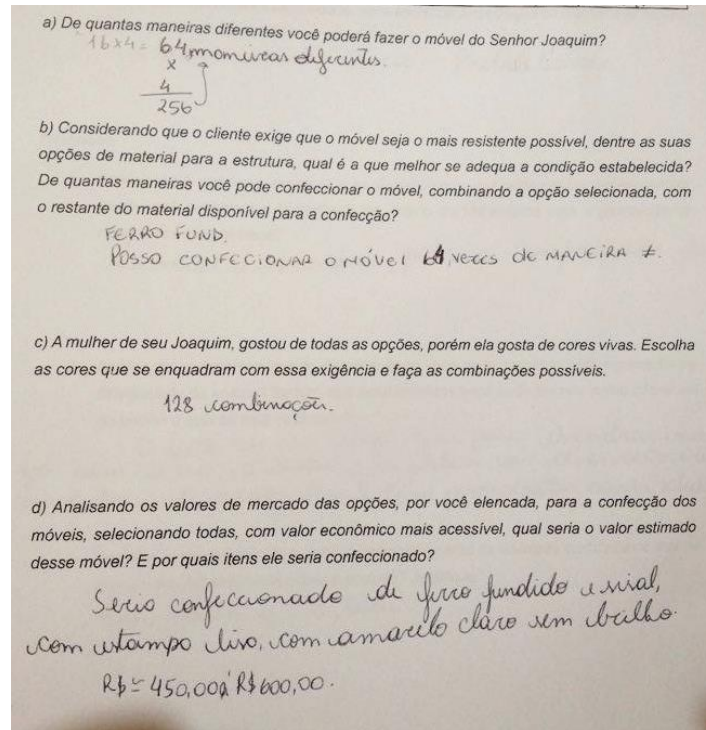 a) De quantas maneiras diferentes você poderá fazer o móvel do Senhor Joaquim?
16x4= 64 maneiras diferentes.
x
4
256
b) Considerando que o cliente exige que o móvel seja o mais resistente possível, dentre as suas
opções de material para a estrutura, qual é a que melhor se adequa a condição estabelecida?
De quantas maneiras você pode confeccionar o móvel, combinando a opção selecionada, com
o restante do material disponível para a confecção?
FERRO FUND.
POSSO CONFECCIONAR O MÓVEL 64 vezes de MANEIRA ≠.
c) A mulher de seu Joaquim, gostou de todas as opções, porém ela gosta de cores vivas. Escolha
as cores que se enquadram com essa exigência e faça as combinações possiveis.
128 combinações.
d) Analisando os valores de mercado das opções, por você elencada, para a confecção dos
móveis, selecionando todas, com valor econômico mais acessível, qual seria o valor estimado
desse móvel? E por quais itens ele seria confeccionado?
Seria confeccionado de ferro fundido e sisal,
com estampo liso, com amarelo claro sem brilho.
R$ ≃ 450,00 à R$ 600,00.